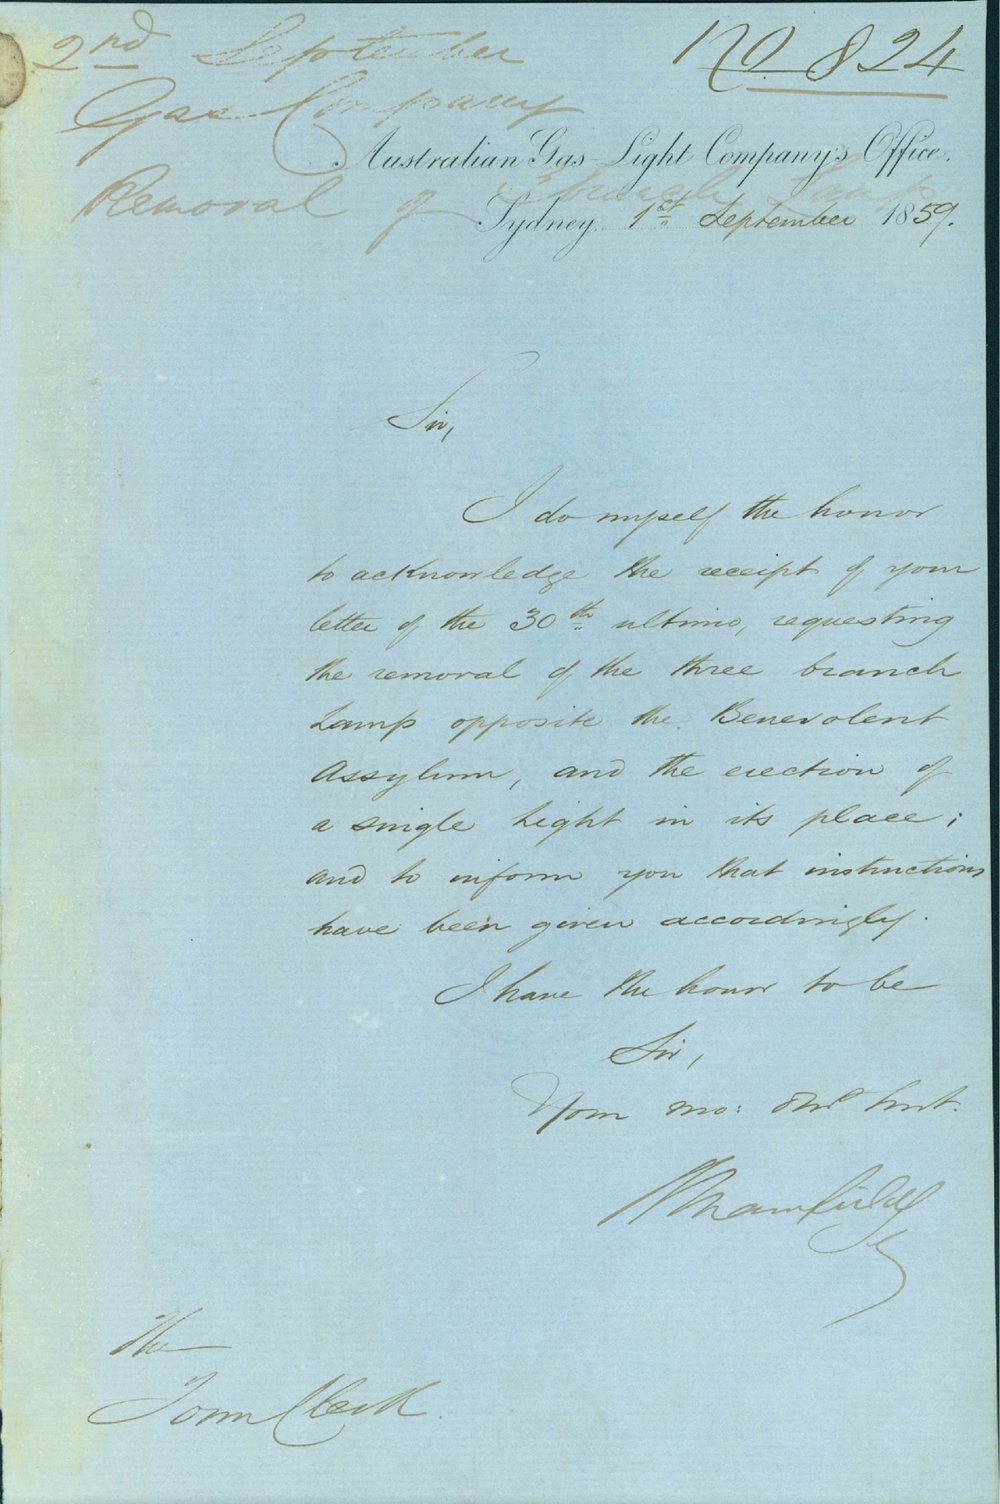 2nd September
No 824
Gas Company
Australian Gas-Light Company's Office.
Removal of 3 branch Lamp
Sydney 1st September 1859.
Sir,
I do myself the honor
to acknowledge the receipt of your
letter of the 30th ultimo, requesting
the removal of the three branch
Lamp opposite the Benevolent
Assylum, and the erection of
a single Light in its place;
and to inform you that instructions
have been given accordingly.
I have the honor to be
Sir,
Your mo: Obt Servt.
RMansfield
The
Town Clerk.